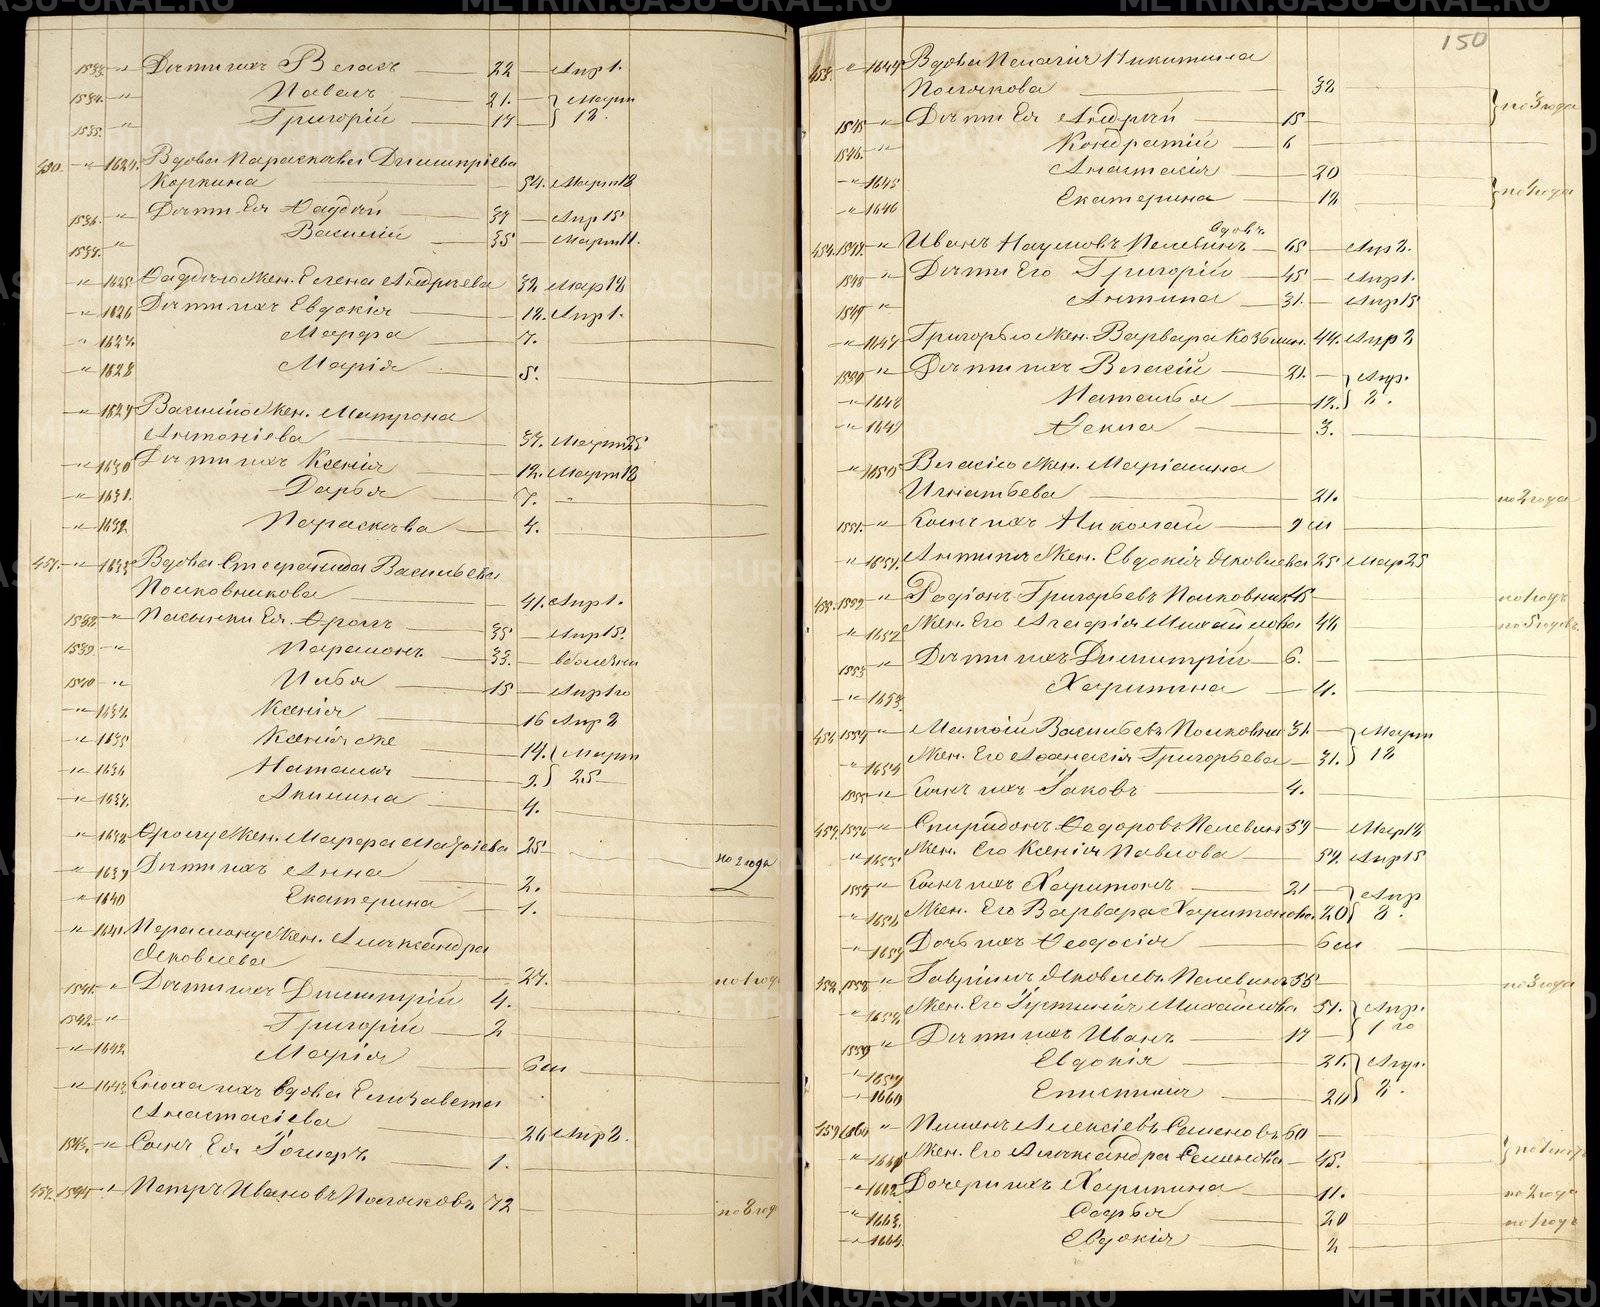 1533. " Дѣти ихъ Власъ — 22 — Апр 1.
1534. " Павелъ — 21. — Март
1535. " Григорій — 17 — 18.
450. " 1624. Вдова Параскева Димитріева
Коркина — 54. Март 18
1536. " Дѣти Ея Фадѣй — 37 — Апр 15
1537. " Василій — 35 — Март 11.
" 1625 Фадѣю Жен. Елена Андреева 32 Мар 18
" 1626 Дѣти ихъ Евдокія — 18. Апр 1.
" 1627. Марфа — 7.
" 1628 Марія — 5.
" 1629 Василію Жен. Матрона
Антоніева — 37. Март 25
" 1630 Дѣти ихъ Ксенія — 12. Март 18
" 1631. Дарья — 7. "
" 1632. Параскева — 4.
451. " 1633 Вдова Стефанида Васильева
Полковникова — 41. Апр 1.
1538. " Пасынки Ея Фролъ — 35 — Апр 15.
1539. " Парамонъ — 33. — вболезни
1540 " Илья — 15 — Апр 1го
" 1634. Ксенія — 16 Апр 2
" 1635 Ксенія же — 14. Март
" 1636 Наталья — 9. 25
" 1637. Акилина — 4.
" 1638 Фролу Жен. Марфа Матфіева 25 — по 2 года
" 1639 Дѣти ихъ Анна — 2.
" 1640 Екатерина — 1.
" 1641. Парамону Жен. Александра
Яковлева — 27. — по 1 год
1541. " Дѣти ихъ Димитрій — 4.
1542. " Григорій — 2
" 1642 Марія — 6 м
" 1643 Сноха ихъ вдова Елизавета
Анастасіева — 26 Апр 2.
1543. " Сынъ Ея — 1.
452. 1544 " Петръ Ивановъ Поляковъ 72 — по 8 год
150
453. " 1644 Вдова Пелагія Никитина
Полякова — 38
1545 " Дѣти Ея Андрей — 15 — по 3 года
1546. " Кондратій — 6
" 1645 Анастасія — 20
" 1646 Екатерина — 18 — по 1 года
вдовъ
454. 1547. " Иванъ Наумовъ Пелевинъ — 65 — Апр 2.
1548 " Дѣти Его Григорій — 45 — Апр 1.
1549 " Антипа — 31. — Апр 15
" 1647 Григорью Жен. Варвара Козьмин. 44. Апр 2
1550 " Дѣти ихъ Власій — 21. — Апр.
" 1648 Наталья — 17. 2.
" 1649 Фекла — 3.
" 1650 Власію Жен. Маріамна
Игнатьева — 21. — по 2 года
1551. " Сынъ ихъ Николай — 9 м
" 1651. Антипа Жен. Евдокія Яковлева 25 Мар 25
455. 1552 " Родіонъ Григорьевъ Полковник. 45 — по 1 годъ
" 1652 Жен. Его Агафія Михайлова 44 — по 5 годовъ
1553 " Дѣти ихъ Димитрій — 6.
" 1653. Харитина — 11.
456 1554 " Матвій Васильевъ Полковник 31. — Март
" 1654 Жен. Его Афанасія Григорьева — 31. 18
1555 " Сынъ ихъ Іаковъ — 4.
457. 1556 " Спиридонъ Федоровъ Пелевин 57 — Мар 18
" 1655 Жен. Его Ксенія Павлова — 57. Апр 15
1557 " Сынъ ихъ Харитонъ — 21 — Апр
" 1656 Жен. Его Варвара Харитонова. 20 2.
" 1657 Дочь ихъ Феодосія — 6 м
458. 1558 " Гавріилъ Яковлевъ Пелевинъ 55 — по 3 года
" 1658 Жен. Его Іустинія Михайлова 51. Апр.
1559 " Дѣти ихъ Иванъ — 17 — 1 го
" 1659 Евдокія — 21. Апр.
" 1660 Епистимія — 20 2.
459. 1560 " Пименъ Алексіевъ Семеновъ 60
" 1661 Жен. Его Александра Семенова — 45. — по 1 году
" 1662 Дочери ихъ Харитина — 11. — по 2 года
" 1663. Софья — 20 — по 1 годъ
" 1664. Евдокія — 2